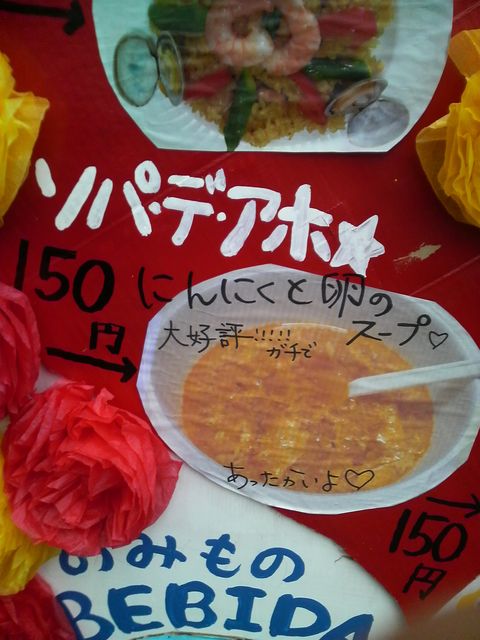 ソパ・デ・アホ☆
150円
にんにくと卵の
スープ♡
大好評!!!!!
ガチで
あったかいよ♡
150円
のみもの
BEBIDA